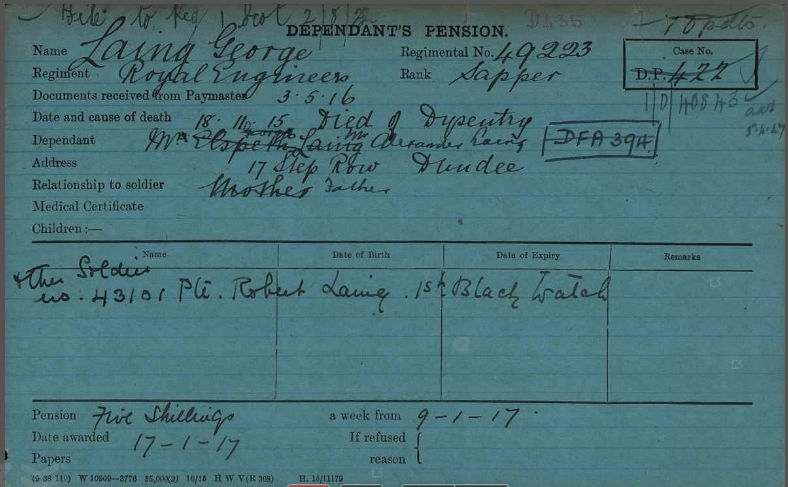 File to Reg 1 Scot 2/8/22
DA35
DEPENDANT'S PENSION.
Name Laing George Regimental No. 49223 Case No.
Regiment Royal Engineers Rank Sapper D.P. 422
Documents received from Paymaster 3.5.16 1/D/40843
Date and cause of death 18.10.15 Died of Dysentry
Dependant Mrs Elspeth Laing Mr Alexander Laing DFA 394
Address 17 Step Row Dundee
Relationship to soldier Mother Father
Medical Certificate
Children :—
Name Date of Birth Date of Expiry Remarks
other Soldier
no. 43101 Pte. Robert Laing 1st Black Watch
Pension Five Shillings a week from 9-1-17
Date awarded 17-1-17 If refused
Papers reason
(9 38 110) W 10909—3776 35,000(2) 10/15 H W V(R 308) H. 15/11179